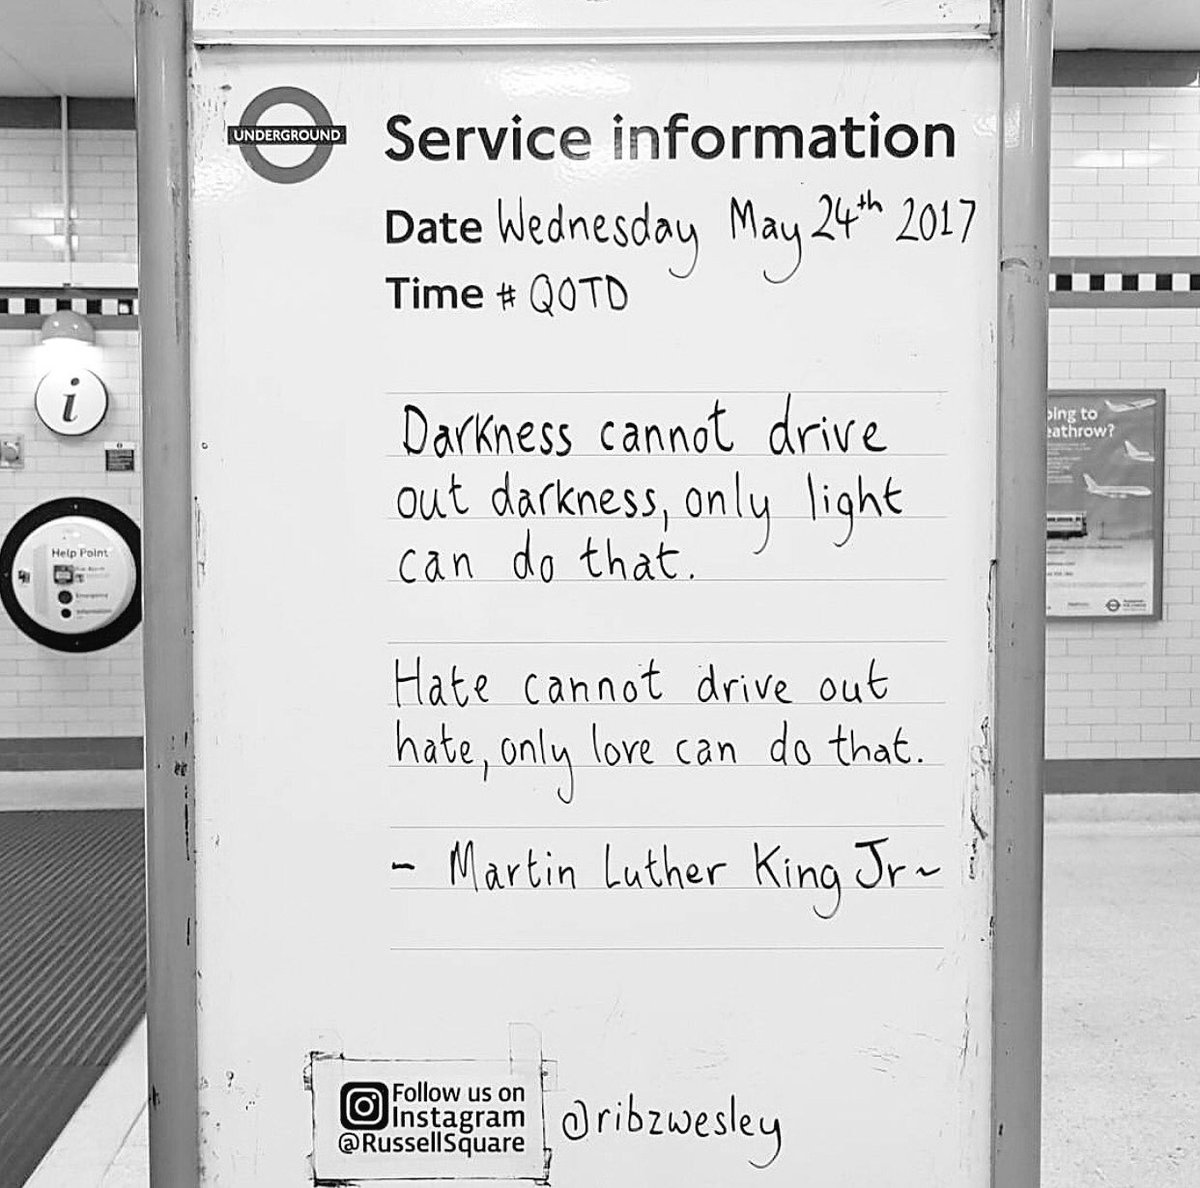 UNDERGROUND
Service information
Date Wednesday May 24th 2017
Time # QOTD
Darkness cannot drive
out darkness, only light
can do that.
Hate cannot drive out
hate, only love can do that.
- Martin Luther King Jr~
Follow us on
Instagram
@RussellSquare
@ribzwesley
i
Help Point
Emergency
Information
oing to
eathrow?